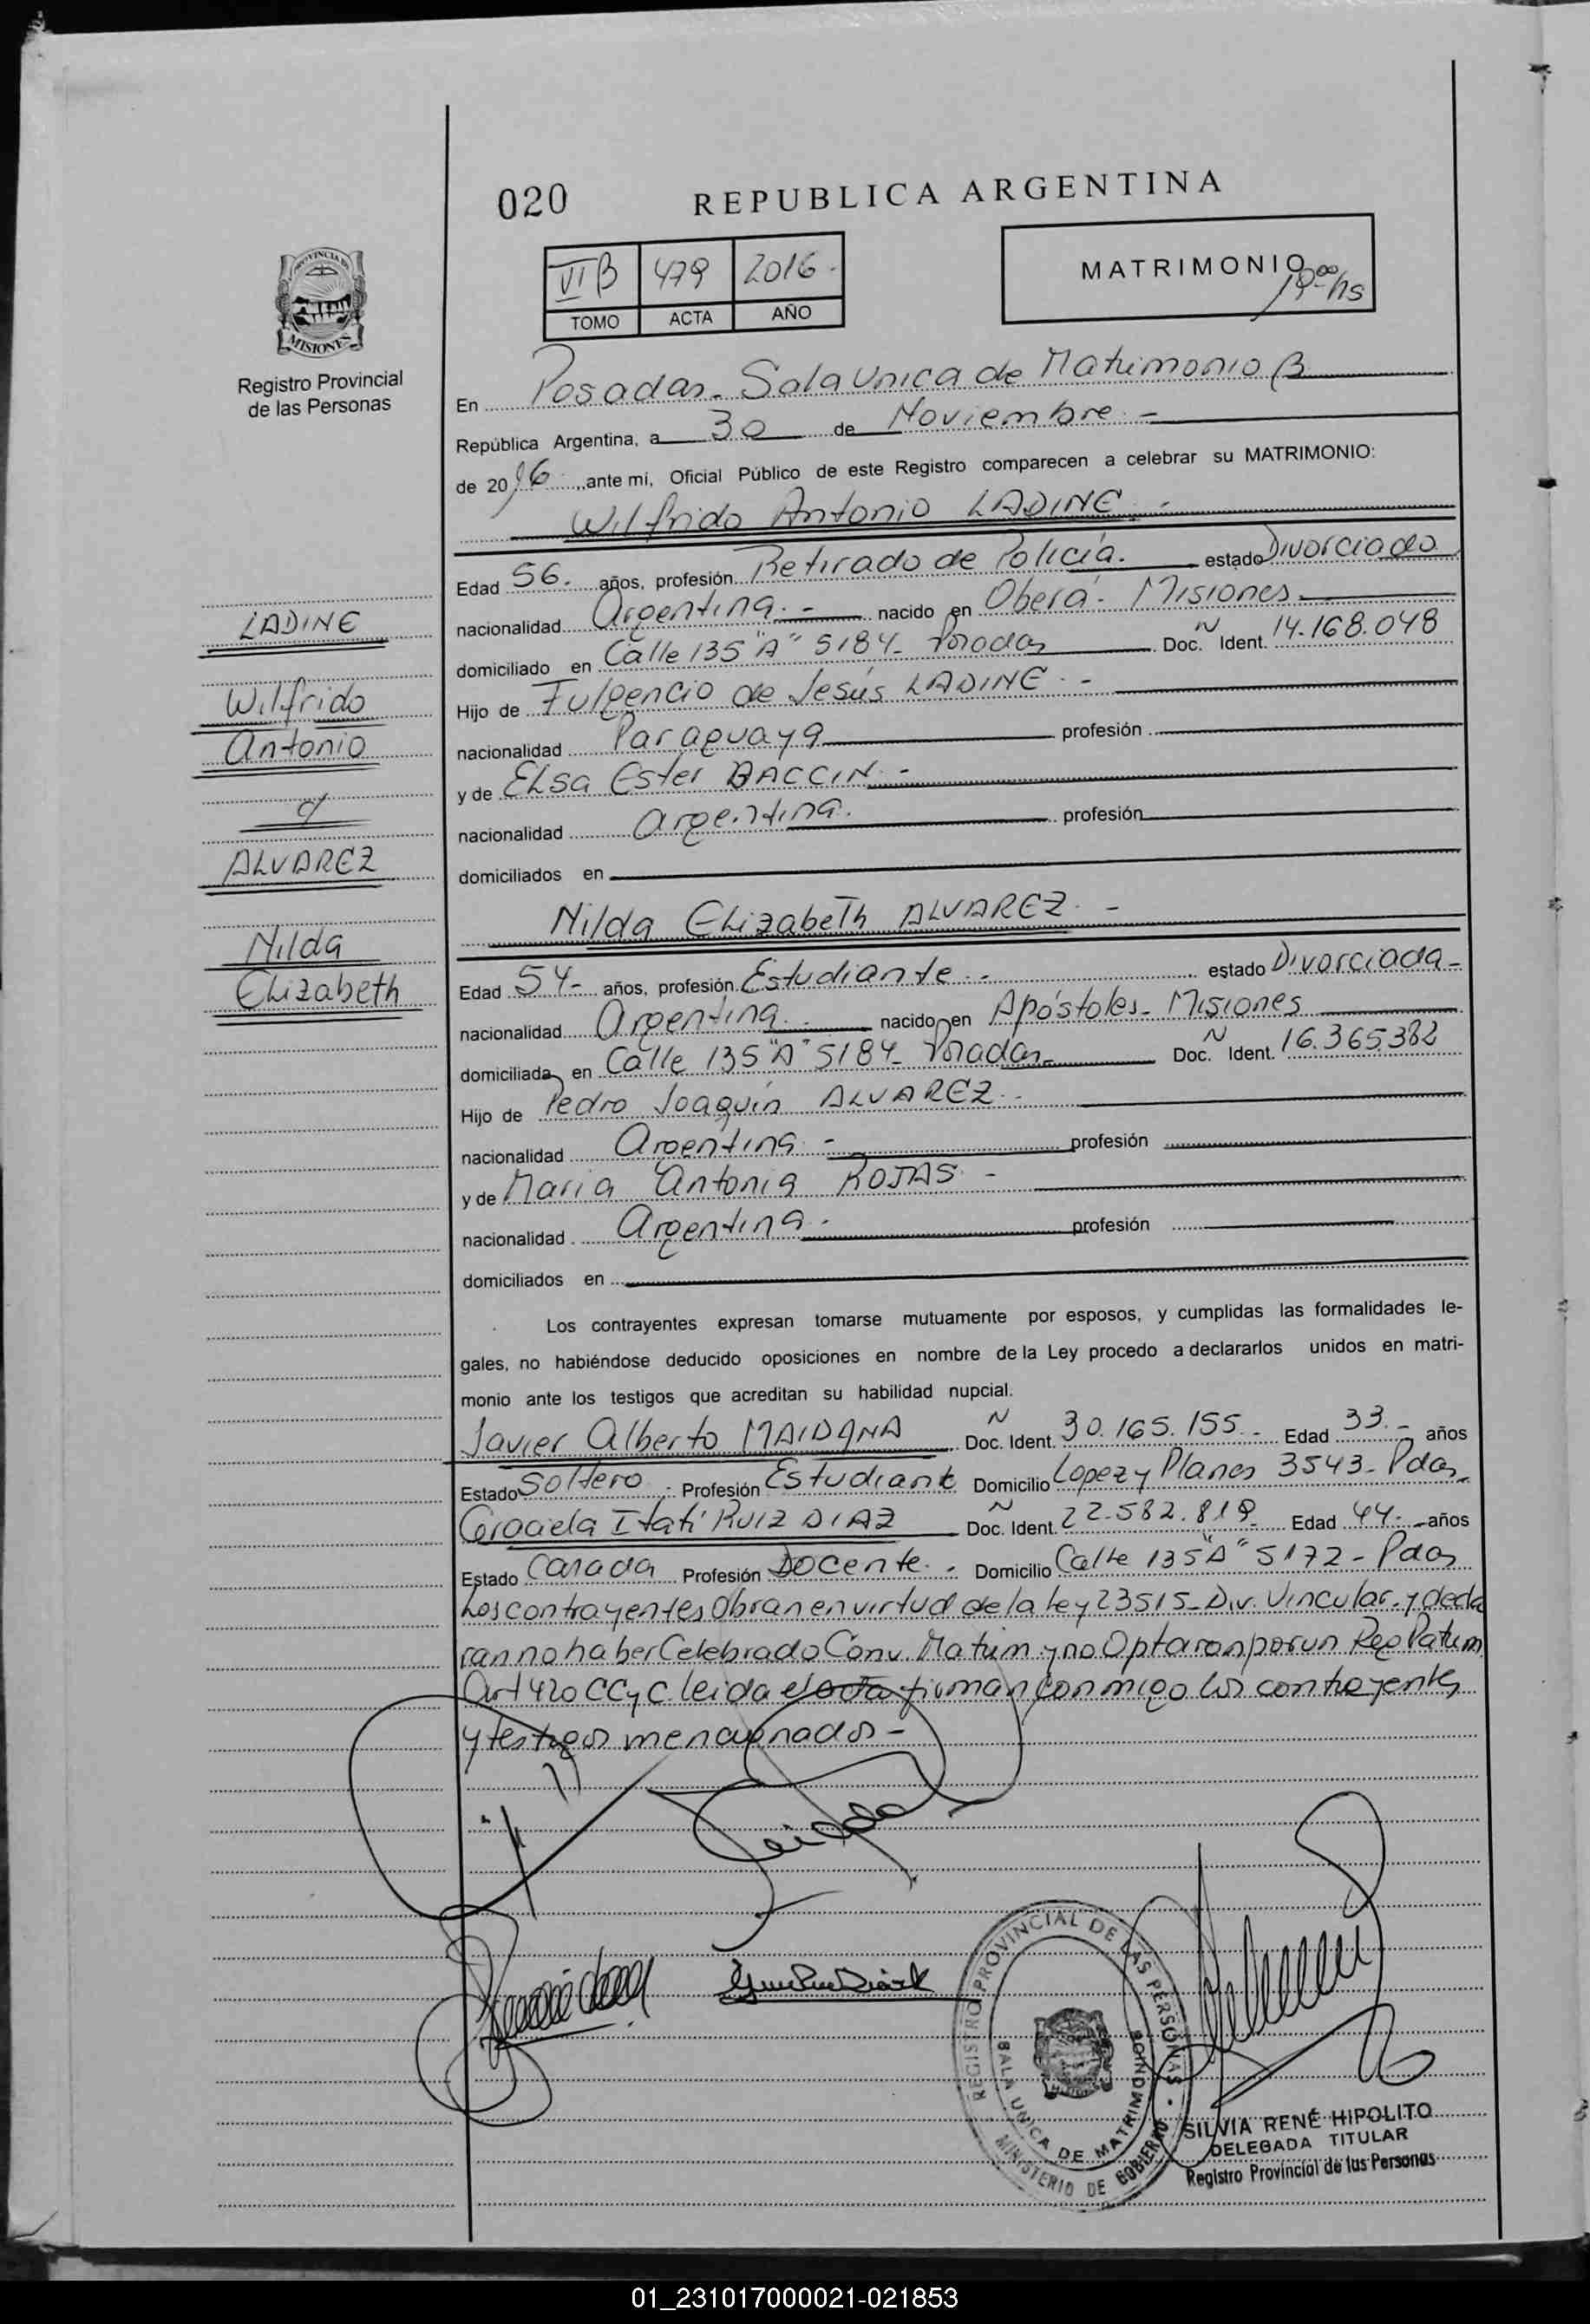 020
REPUBLICA ARGENTINA
VI B 479 2016
TOMO ACTA AÑO
MATRIMONIO
19 00 hs
PROVINCIA DE
MISIONES
Registro Provincial
de las Personas
En Posadas - Sala Unica de Matrimonio B
República Argentina, a 30 de Noviembre -
de 2016 ante mi, Oficial Público de este Registro comparecen a celebrar su MATRIMONIO:
Wilfrido Antonio LADINE -
Edad 56 - años, profesión Retirado de Policía. estado Divorciado
nacionalidad Argentina - nacido en Oberá - Misiones
domiciliado en Calle 135 "A" 5184 - Posadas Doc. N Ident. 14.168.048
Hijo de Fulgencio de Jesús LADINE -
nacionalidad Paraguaya profesión
y de Elsa Ester BACCIN -
nacionalidad Argentina. profesión
domiciliados en
LADINE
Wilfrido
Antonio
c/
ALVAREZ
Nilda
Elizabeth
Nilda Elizabeth ALVAREZ -
Edad 54 - años, profesión Estudiante - estado Divorciada -
nacionalidad Argentina - nacido en Apóstoles - Misiones
domiciliada en Calle 135 "A" 5184 - Posadas Doc. N Ident. 16.365.382
Hijo de Pedro Joaquín ALVAREZ -
nacionalidad Argentina - profesión
y de Maria Antonia ROJAS -
nacionalidad Argentina - profesión
domiciliados en
Los contrayentes expresan tomarse mutuamente por esposos, y cumplidas las formalidades le-
gales, no habiéndose deducido oposiciones en nombre de la Ley procedo a declararlos unidos en matri-
monio ante los testigos que acreditan su habilidad nupcial.
Javier Alberto MAIDANA Doc. N Ident. 30.165.155 - Edad 33 - años
Estado Soltero - Profesión Estudiante Domicilio Lopez y Planes 3543 - Pdas
Graciela Itatí RUIZ DIAZ Doc. N Ident. 22.582.819 Edad 44 - años
Estado Casada Profesión Docente - Domicilio Calle 135 "A" 5172 - Pdas
Los contrayentes Obran en virtud de la ley 23515 - Div. Vincular - y decla
ran no haber Celebrado Conv. Matrim y no Optaron por un Reg Patrim
Art 420 CC y C. leida el acta firman conmigo los contrayentes
y testigos mencionados -
REGISTRO PROVINCIAL DE LAS PERSONAS
SALA UNICA DE MATRIMONIOS
MINISTERIO DE GOBIERNO
SILVIA RENÉ HIPOLITO
DELEGADA TITULAR
Registro Provincial de las Personas
01_231017000021-021853